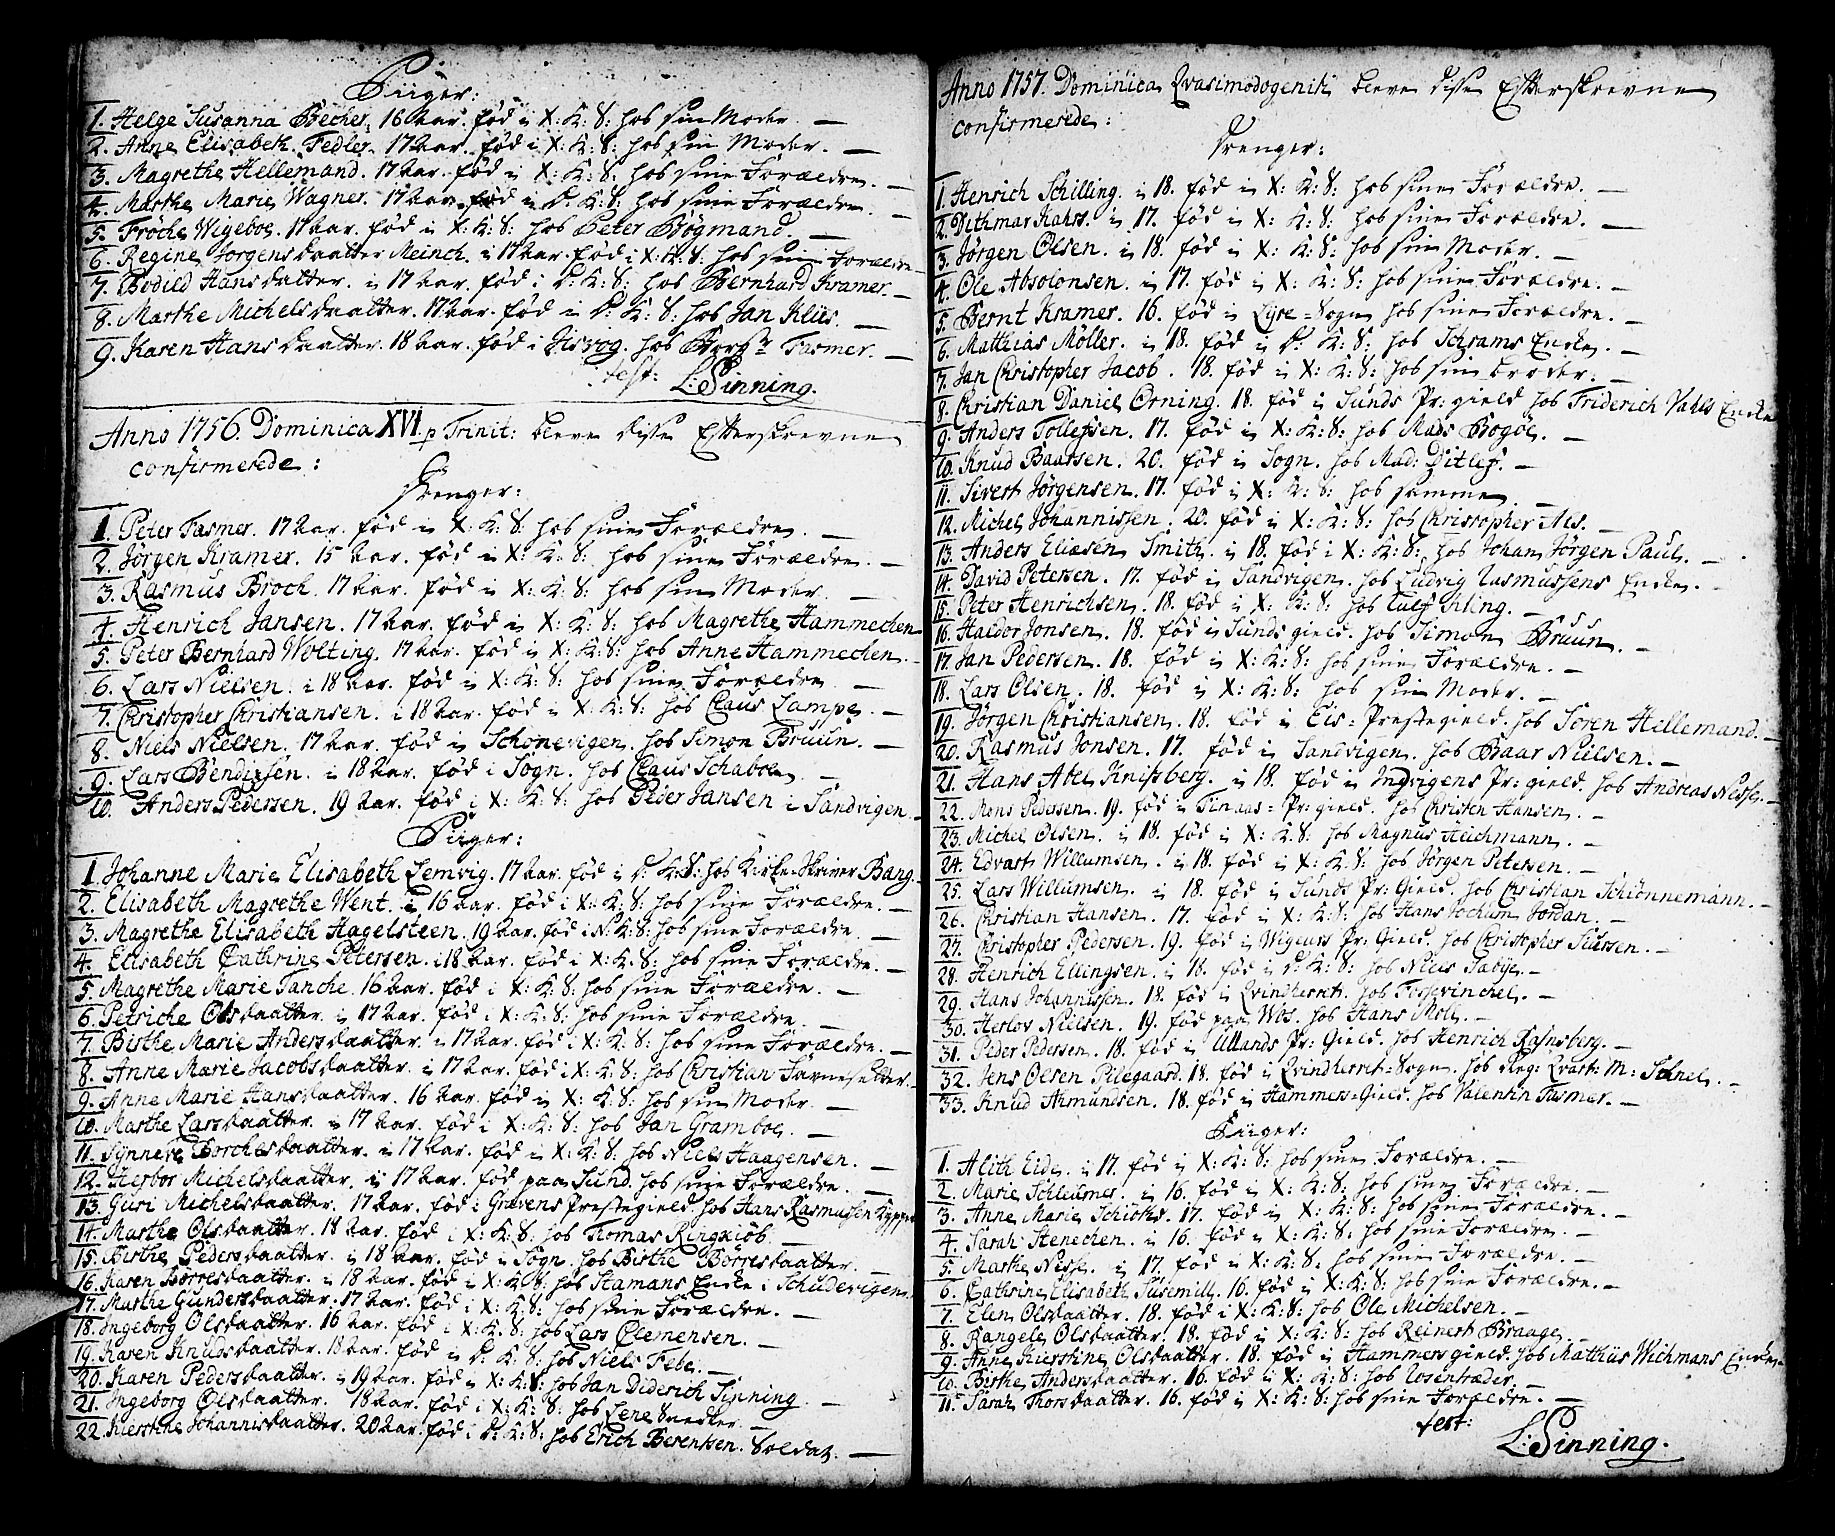 Piiger:
1. Helge Susanna Becher, 16 Aar. fød i X: K: S: hos sin Moder. —
2. Anne Elisabeth Fedler. 17 Aar. fød i X: K: S: hos sin Moder. —
3. Magrethe Hellemand. 17 Aar. fød i X: K: S: hos sine Forældre. —
4. Marthe Marie Wagner. 17 Aar. fød i D: K: S: hos sine Forældre. —
5. Frøche Wigeboe. 17 Aar. fød i X: K: S: hos Peter Bøgmand. —
6. Regine Jørgensdaatter Meinch. i 17 Aar. fød i X: K: S: hos sine Forældre
7. Bodild Hansdatter. i 17 Aar. fød i D: K: S: hos Bernhard Kramer. —
8. Marthe Michelsdaatter. 17 Aar. fød i D: K: S: hos Jan Klies. —
9. Karen Hansdaatter. 18 Aar. fød i hos Tasmer. —
test: L: Sinning.
Anno 1756. Dominica XVI p Trinit: bleve disse Efterskrevne
confirmerede:
Drenger:
1. Peter Tasmer. 17 Aar. fød i X: K: S: hos sine Forældre. —
2. Jørgen Kramer. 15 Aar. fød i X: K: S: hos sine Forældre. —
3. Rasmus Broch. 17 Aar. fød i X: K: S: hos sin Moder. —
4. Henrich Jansen. 17 Aar. fød i X: K: S: hos Magrethe Hammechen
5. Peter Bernhard Wolting. 17 Aar. fød i X: K: S: hos Anne Hammechen. —
6. Lars Nielsen. i 18 Aar. fød i X: K: S: hos sine Forældre. —
7. Christopher Christiansen. i 18 Aar. fød i X: K: S: hos Claus Lampe. —
8. Niels Nielsen. 17 Aar. fød i Schonevigen. hos Simon Bruun. —
9. Lars Bendixsen. i 18 Aar. fød i Sogn. hos Claus Schaboe. —
10. Anders Pedersen. 19 Aar. fød i X: K: S: hos Peter Jansen i Sandvigen. —
Piiger:
1. Johanne Marie Elisabeth Lemvig. 17 Aar. fød i D: K: S: hos Kirke-Skriver Bang. —
2. Elisabeth Magrethe Went. i 16 Aar. fød i X: K: S: hos sine Forældre. —
3. Magrethe Elisabeth Hagelsteen. 19 Aar. fød i N: K: S: hos sine Forældre. —
4. Elisabeth Cathrine Petersen. i 18 Aar. fød i X: K: S: hos sine Forældre. —
5. Magrethe Marie Tanche. 16 Aar. fød i X: K: S: hos sine Forældre. —
6. Petriche Olsdaatter. i 17 Aar. fød i X: K: S: hos sine Forældre. —
7. Birthe Marie Andersdaatter. i 17 Aar. fød i X: K: S: hos sine Forældre. —
8. Anne Marie Jacobsdaatter. i 17 Aar. fød i X: K: S: hos Christian —
9. Anne Marie Hansdaatter. 16 Aar. fød i X: K: S: hos sin Moder. —
10. Marthe Larsdaatter. i 17 Aar. fød i X: K: S: hos Jan Gramboe. —
11. Synneve Borchesdaatter. i 17 Aar. fød i X: K: S: hos Niels Haagensen. —
12. Herbor Michelsdaatter. i 17 Aar. fød paa Sund. hos sine Forældre. —
13. Guri Michelsdaatter. 17 Aar. fød i Gravens Præstegield. hos Hans Rasmussen Kypper
14. Marthe Olsdaatter. 18 Aar. fød i X: K: S: hos Thomas Ringkiøb. —
15. Birthe Pedersdaatter. i 18 Aar. fød i Sogn. hos Birthe Børresdaatter. —
16. Karen Børresdaatter. i 18 Aar. fød i X: K: S: hos Stamans Encke i Schudevigen.
17. Marthe Gundersdaatter. 17 Aar. fød i X: K: S: hos sine Forældre. —
18. Ingeborg Olsdaatter. 16 Aar. fød i X: K: S: hos Lars Clemensen. —
19. Karen Knudsdaatter. 18 Aar. fød i D: K: S: hos Niels Febe.
20. Karen Pedersdaatter. i 19 Aar. fød i X: K: S: hos Jan Diderich Sinning. —
21. Ingeborg Olsdaatter. 18 Aar. fød i X: K: S: hos Lene Snedker. —
22. Kierstine Johannisdaatter. 20 Aar. fød i D: K: S: hos Erich Berentsen. Soldat. —
Anno 1757. Dominica Qvasimodogeniti bleve disse Efterskrevne
confirmerede:
Drenger:
1. Henrich Schilling. i 18. fød i X: K: S: hos sine Forældre. —
2. Dithmar Kahrs. i 17. fød i X: K: S: hos sine Forældre. —
3. Jørgen Olsen. i 18. fød i X: K: S: hos sin Moder. —
4. Ole Absolonsen. i 17. fød i X: K: S: hos sine Forældre. —
5. Bernt Kramer. 16. fød i Eyre-Sogn hos sine Forældre. —
6. Matthias Møller. i 18. fød i D: K: S: hos Schrams Encke. —
7. Jan Christopher Jacob. 18. fød i X: K: S: hos sin broder. —
8. Christian Daniel Orning. 18. fød i Sunds Pr: gield hos Friderich Vahls Encke
9. Anders Tollefsen. 17. fød i X: K: S: hos Mads Bogøe. —
10. Knud Baarsen. 20. fød i Sogn. hos Mad: Ditlefs. —
11. Sivert Jørgensen. 17. fød i X: K: S: hos samme. —
12. Michel Johannissen. 20. fød i X: K: S: hos Christopher Als. —
13. Anders Eliæsen Smith. i 18. fød i X: K: S: hos Johan Jørgen Paul. —
14. David Petersen. 17. fød i Sandvigen. hos Ludvig Rasmussens Encke. —
15. Peter Henrichsen. 18. fød i X: K: S: hos Ihling. —
16. Haldor Jonsen. 18. fød i Sunds gield. hos Simon Bruun. —
17. Jan Pedersen. 18. fød i X: K: S: hos sine Forældre. —
18. Lars Olsen. 18. fød i X: K: S: hos sin Moder. —
19. Jørgen Christiansen. 18. fød i Eis-Præstegield. hos Søren Hellemand. —
20. Rasmus Jonsen. 17. fød i Sandvigen. hos Baar Nielsen. —
21. Hans Abel Knifsberg. i 18. fød i Pr: gield. hos Andreas Nesse. —
22. Mons Pedersen. 19. fød i Finaas-Pr: gield. hos Christen Hansen. —
23. Michel Olsen. i 18. fød i X: K: S: hos Magnus Heichmann. —
24. Edvart Willumsen. i 18. fød i X: K: S: hos Jørgen Petersen. —
25. Lars Willumsen. i 18. fød i Sunds Pr: Gield. hos Christian Schiønnemann. —
26. Christian Hansen. 17. fød i X: K: S: hos Hans Jochum Jordan. —
27. Christopher Pedersen. 19. fød i Wigeurs Pr: Gield. hos Christopher Siursen. —
28. Henrich Ellingsen. i 18. fød i D: K: S: hos Niels Sabye. —
29. Hans Johannissen. 18. fød i Qvindherret. hos Tostvinchel. —
30. Herlov Nielsen. 19. fød paa Vos. hos Hans Mol. —
31. Peder Pedersen. 18. fød i Ullands Pr: Gield. hos Henrich Rafnsberg. —
32. Jens Olsen Pilegaard. 18. fød i Qvindherret-Sogn. hos Reg: Qvart: M: Schnel. —
33. Knud Akmundsen. 18. fød i Hammers-Gield. hos Valentin Tasmer. —
Piiger:
1. Alith Eide. i 17. fød i X: K: S: hos sine Forældre. —
2. Marie Schleumer. i 16. fød i X: K: S: hos sine Forældre. —
3. Anne Marie Schiøtz. 17. fød i X: K: S: hos sine Forældre. —
4. Sarah Stenechen. i 16. fød i X: K: S: hos sine Forældre. —
5. Marthe Nesse. i 17. fød i X: K: S: hos sine Forældre. —
6. Cathrine Elisabeth Susemill. 16. fød i X: K: S: hos sine Forældre. —
7. Elen Olsdaatter. 18. fød i X: K: S: hos Ole Michelsen. —
8. Rangele Olsdaatter. 18. fød i X: K: S: hos Reinert Braage. —
9. Anne Kierstine Olsdaatter. 18. fød i Hammers gield. hos Mathias Wichmans Encke
10. Birthe Andersdaatter. 16. fød i X: K: S: hos Rosentræder. —
11. Sarah Thorsdaatter. 16. fød i X: K: S: hos sine Forældre. —
test:
L: Sinning.